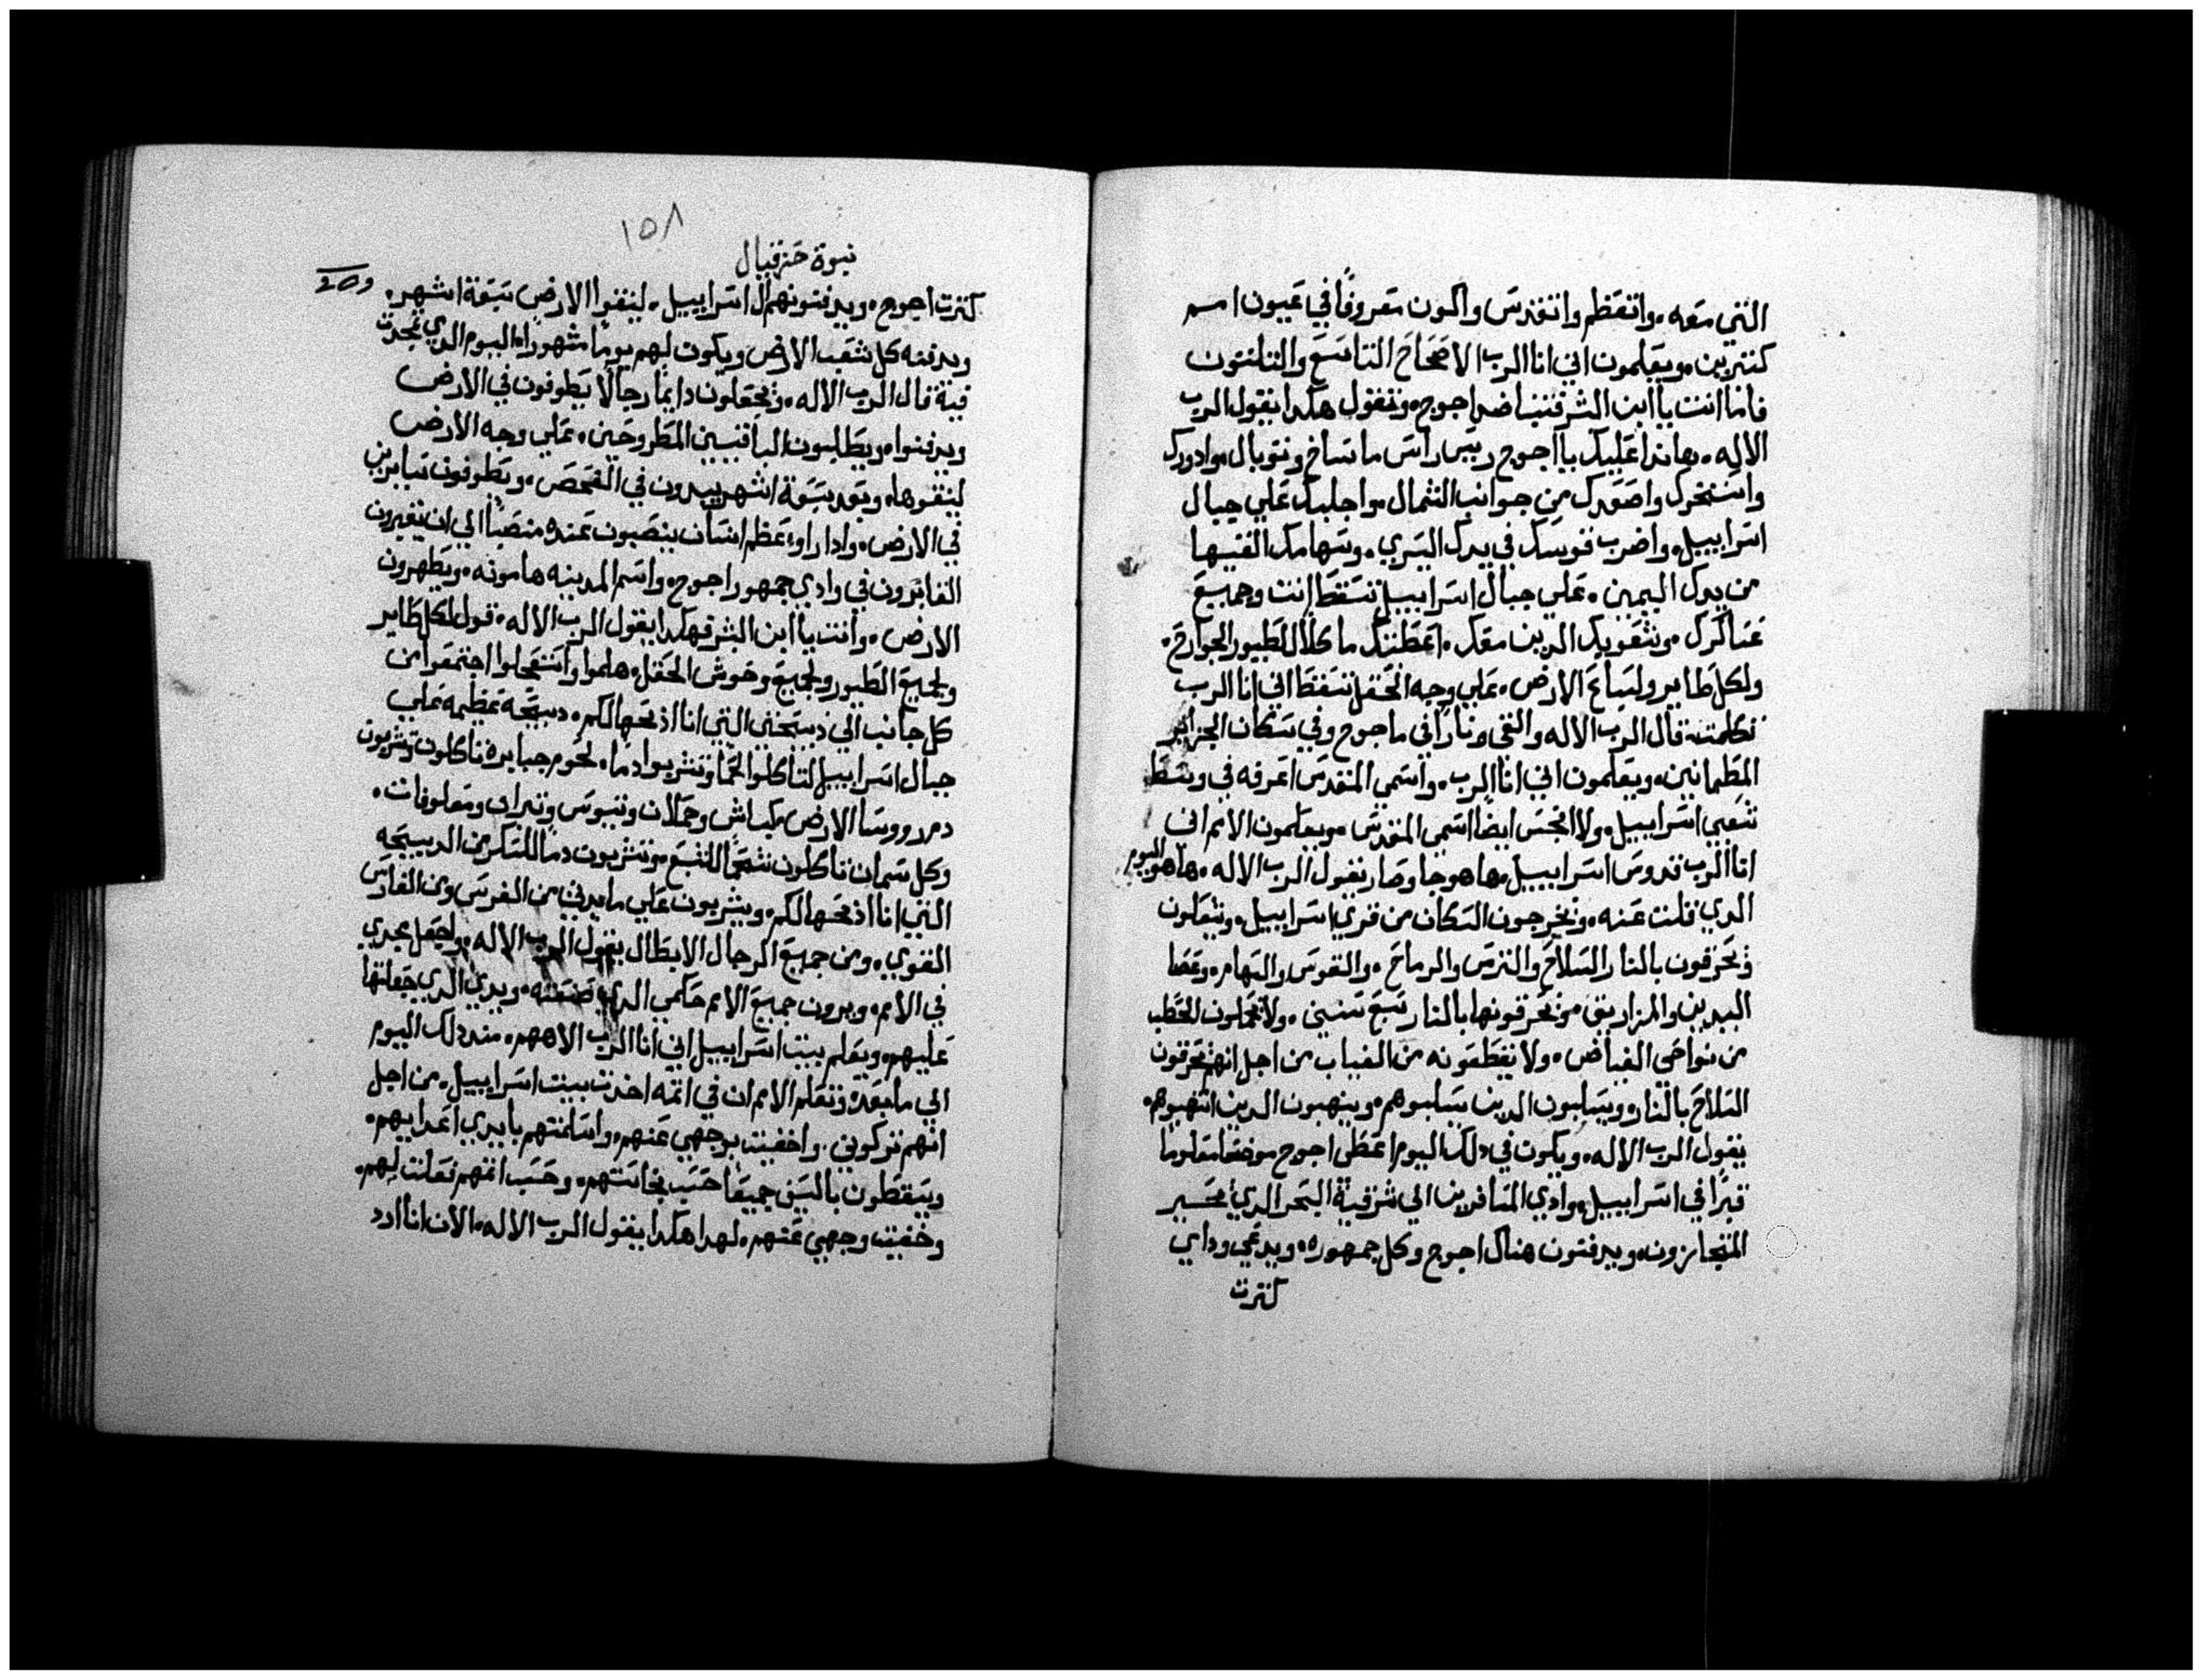 التي معه. واتعظم واتقدس واكون معروفًا في عيون امم
كتيرين. ويعلمون اني انا الرب الاصحاح التاسع والتلتون
فاما انت يا ابن البشر فتنبا ضد اجوج. وتقول هكدا يقول الرب
الاله. هاندا عليك يا اجوج رييس راس ماشاخ وتوبال. وادورك
واستخرك واصعدك من جوانب الشمال. واجلبك علي جبال
اسراييل. واضرب قوسك في يدك اليسري. وسهامك القيها
من يدك اليمين. علي جبال اسراييل تسقط انت وجميع
عساكرك. وشعوبك الدين معك. اعطيتك ماكلا للطيور الجوارح.
ولكل طاير ولسباع الارض. علي وجه الحقل تسقط اني انا الرب
تكلمت قال الرب الاله والقي نارًا في ماجوج وفي سكان الجزاير
المطمانين. ويعلمون اني انا الرب. واسمي المقدس اعرفه في وسط
شعبي اسراييل. ولا انجس ايضًا اسمي المقدس. ويعلمون الامم اني
انا الرب قدوس اسراييل. ها هو جا وصار يقول الرب الاله. ها هو اليوم
الدي قلت عنه. ويخرجون السكان من قري اسراييل. ويشعلون
ويحرقون بالنار السلاح والترس والرماح. والقوس والسهام. وعصا
اليدين والمزاريق. ويحرقونها بالنار سبع سنين. ولا يحملون الحطب
من نواحي الغياض. ولا يقطعونه من الغياب من اجل انهم يحرقون
السلاح بالنار. ويسلبون الدين سلبوهم. وينهبون الدين انتهبوهم.
يقول الرب الاله. ويكون في دلك اليوم اعطي اجوج موضعًا معلومًا
قبرًا في اسراييل. وادي المسافرين الي شرقية البحر الدي يحسير
المتجاوزون. ويدفنون هناك اجوج وكل جمهوره. ويدعي وداي
كترت
١٥٨
نبوة حزقيال
كترت اجوج. ويدفنونهم ال اسراييل. لينقوا الارض سبعة اشهر.
ويدفنه كل شعب الارض ويكون لهم يومًا مشهورًا. اليوم الدي تمجدت
فيه قال الرب الاله. ويجعلون دايمًا رجالًا يطوفون في الارض
ويدفنوا. ويطلبون الباقيين المطروحين. علي وجه الارض
لينقوها. وبعد سبعة اشهر يبدون في الفحص. ويطوفون سايرين
في الارض. وادا راوا عظم انسان ينصبون عنده منصبًا الي ان يقبرون
القابرون في وادي جمهور اجوج. واسم المدينه هامونه. ويطهرون
الارض. وانت يا ابن البشر فهكدا يقول الرب الاله. قول لكل طاير
ولجميع الطيور ولجميع وحوش الحقل. هلموا واستعجلوا اجتمعوا من
كل جانب الي دبيحتي التي انا ادبحها لكم. دبيحه عظيمه علي
جبال اسراييل لتاكلوا لحمًا وتشربوا دمًا. لحوم جبابرة تاكلون وتشربون
دم روسا الارض. كباش وحملان وتيوس وتيران ومعلوفات.
وكل سمان تاكلون شحمًا للشبع وتشربون دمًا للسكر من الدبيحه
التي انا ادبحها لكم. ويشربون علي مايدتي من الفرس ومن الفارس
القوي. ومن جميع الرجال الابطال يقول الرب الاله. واجعل مجدي
في الامم. ويرون جميع الامم حكمي الدي صنعته. ويدي الدي جعلتها
عليهم. ويعلم بيت اسراييل اني انا الرب الاههم. مند دلك اليوم
الي ما بعده وتعلم الامم ان في اتمه اخدت بيت اسراييل. من اجل
انهم تركوني. واخفيت بوجهي عنهم. واسلمتهم بايدي اعداييهم.
ويسقطون بالسيف جميعًا حسب نجاستهم. وحسب اتمهم فعلت لهم.
وخفيت وجهي عنهم. لهدا هكدا يقول الرب الاله. الان انا ارد